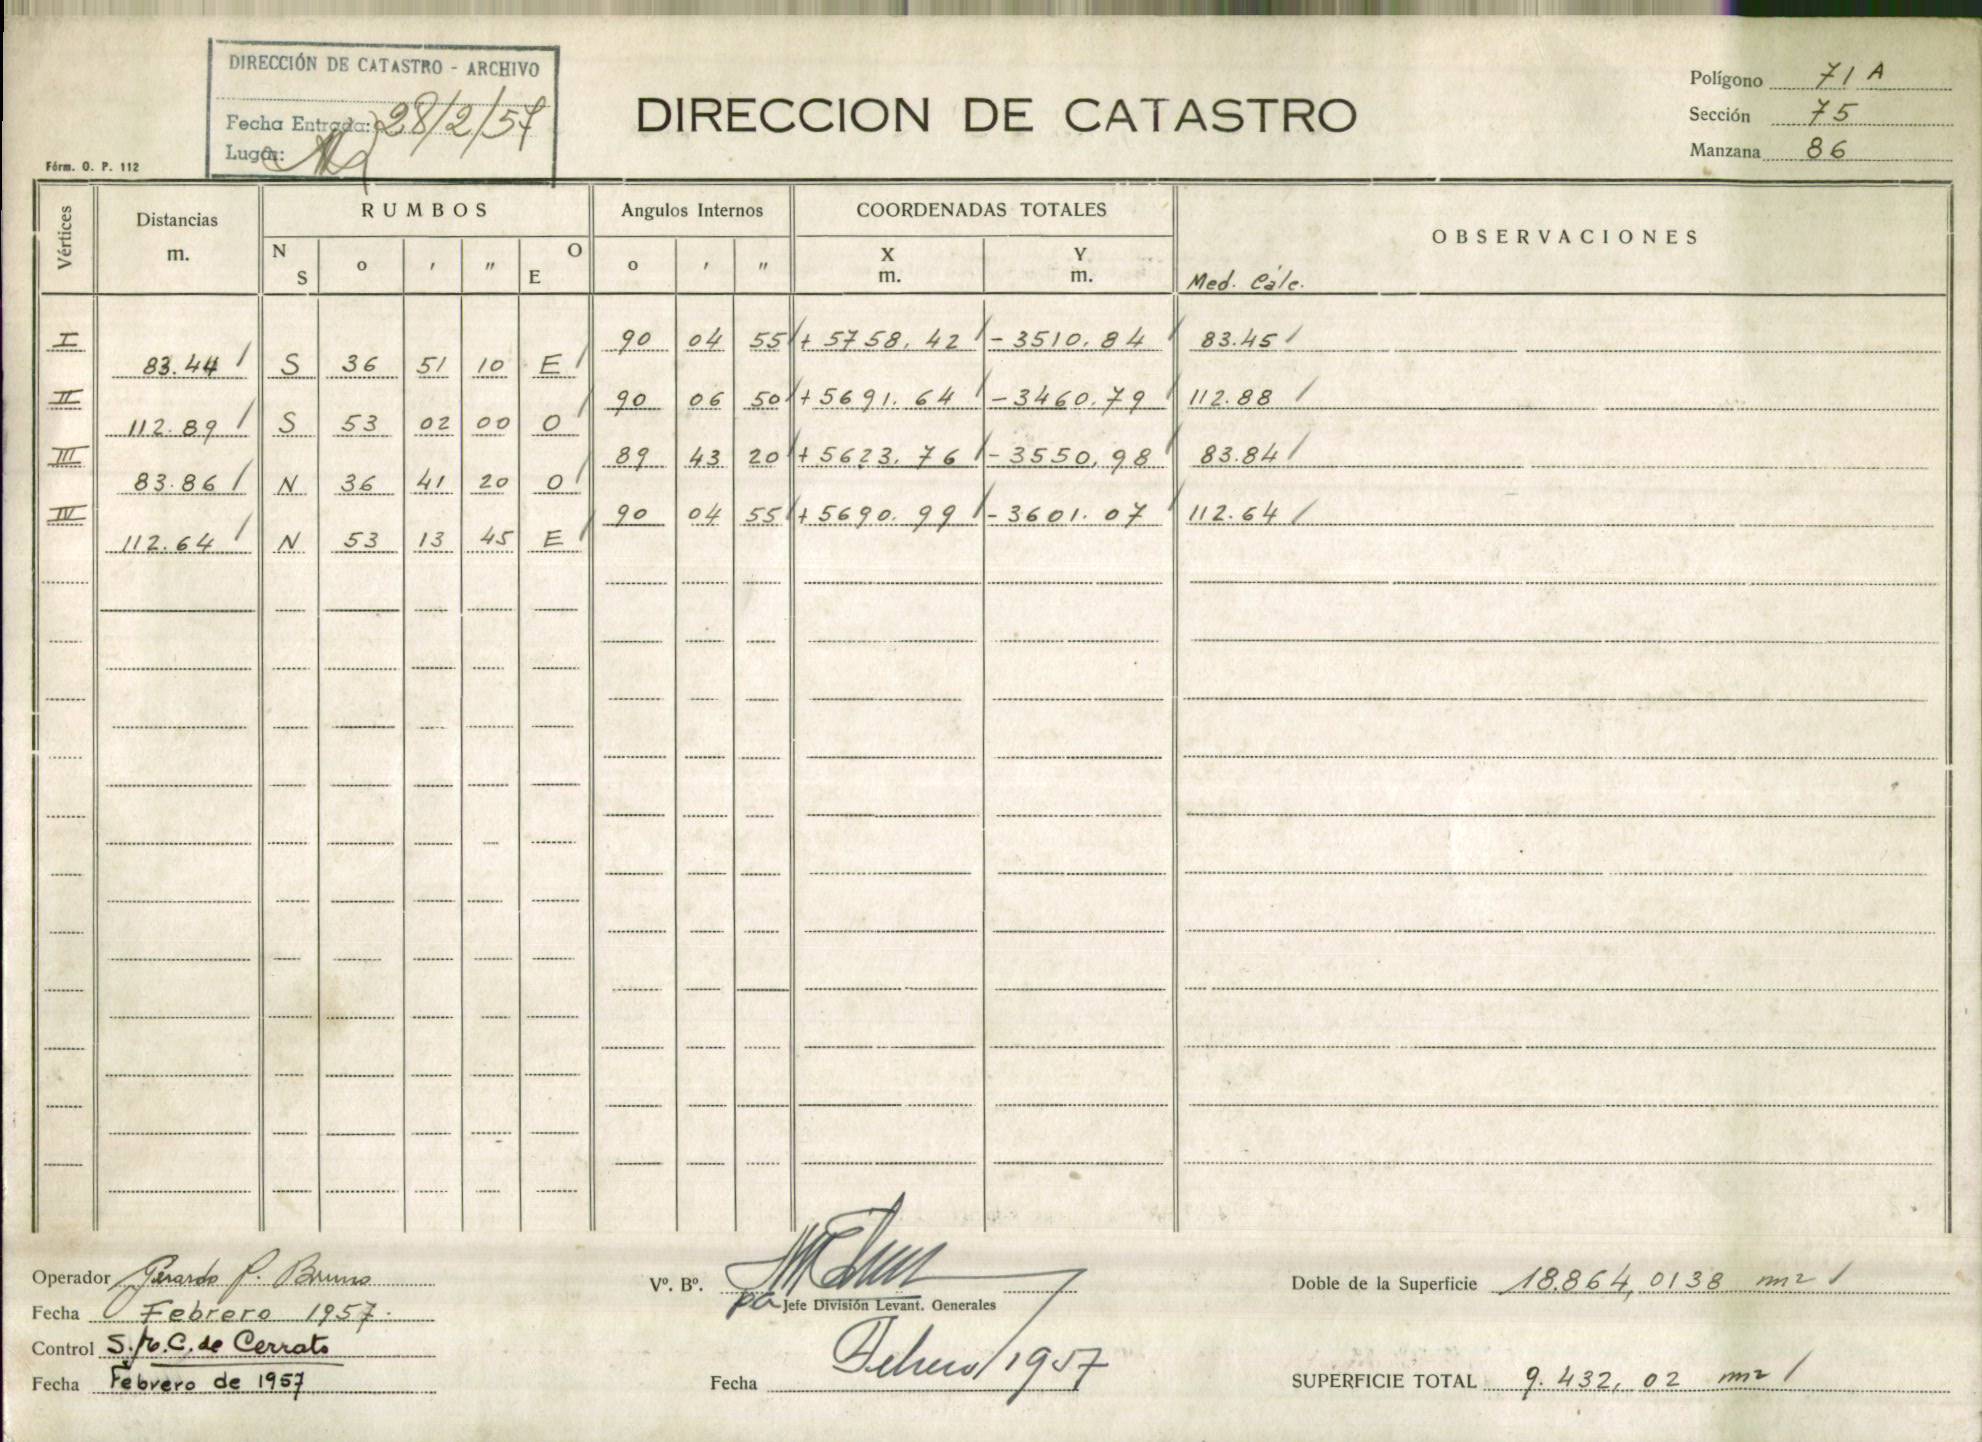 DIRECCIÓN DE CATASTRO - ARCHIVO
Fecha Entrada: 28/2/57
Lugar:
Fórm. O. P. 112
DIRECCION DE CATASTRO
Polígono 71 A
Sección 75
Manzana 86
Vértices
Distancias
m.
RUMBOS
N
S
o
'
"
O
E
Angulos Internos
o ' "
COORDENADAS TOTALES
X
m.
Y
m.
OBSERVACIONES
Med. Cálc.
I 90 04 55 + 5758,42 - 3510.84 83.45
83.44 S 36 51 10 E
II 90 06 50 + 5691.64 - 3460.79 112.88
112.89 S 53 02 00 O
III 89 43 20 + 5623.76 - 3550,98 83.84
83.86 N 36 41 20 O
IV 90 04 55 + 5690.99 - 3601.07 112.64
112.64 N 53 13 45 E
Operador Gerardo P. Bruno
Fecha Febrero 1957.
Control de Cerrato
Fecha Febrero de 1957
Vº. Bº.
Jefe División Levant. Generales
Fecha Febrero/1957
Doble de la Superficie 18.864,0138 m2
SUPERFICIE TOTAL 9.432,02 m2